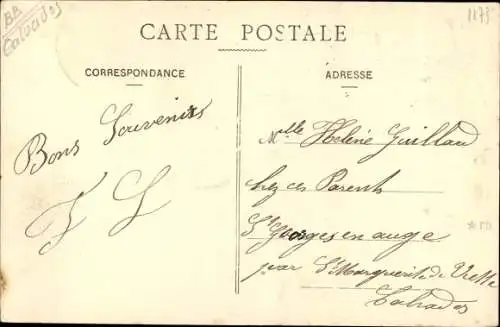 BB
Calvados
1173
CARTE POSTALE
CORRESPONDANCE
Bons Souvenirs
ADRESSE
Mlle Hélène Guillau
chez ces Parents
St Georges en auge
par Ste Marguerite de Viette
Calvados